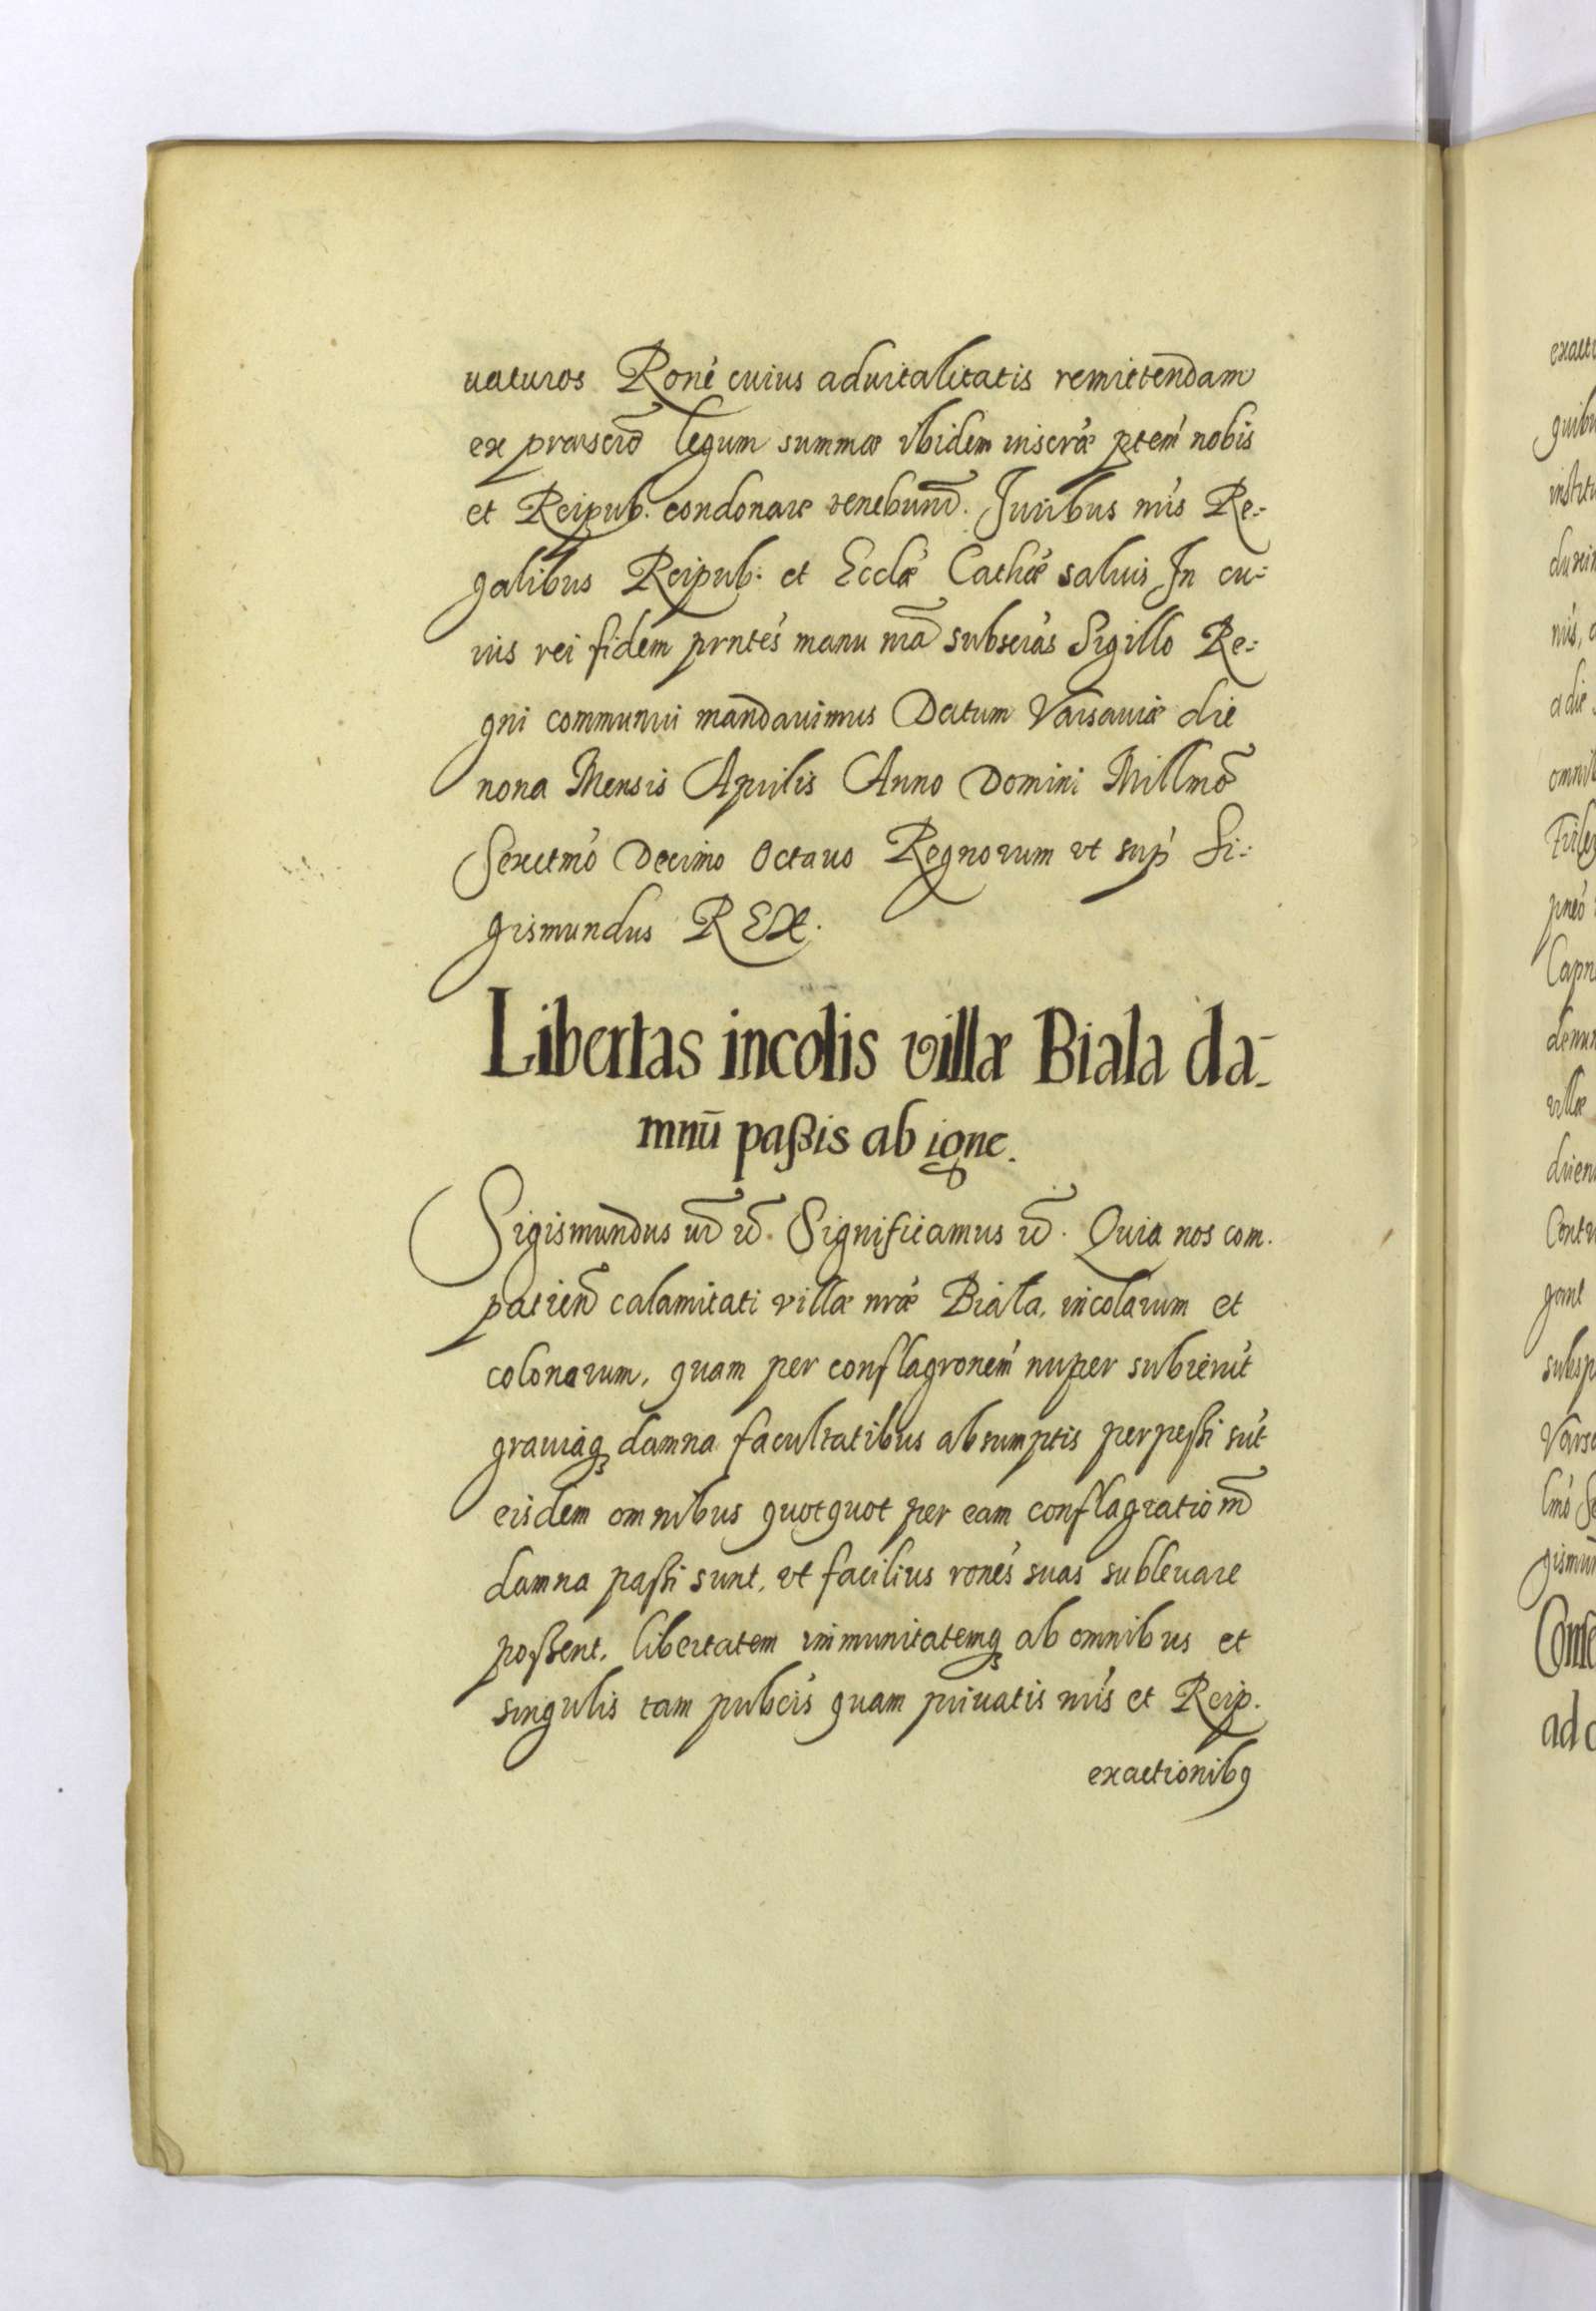 uaturos Roné cuius aduitalitatis remittendam
ex præscrõ legum summæ ibidem inscræ ptem nobis
et Reipub. condonare tenebunt̃. Juribus nris Re-
galibus Reipub. et Ecclæ Cathæ saluis In cu-
ius rei fidem prntés manu nrã subscrás Sigillo Re-
gni communiri mandauimus Datum Varsauiæ die
nona Mensis Aprilis Anno Domini Millmõ
Sexctmó Decimo Octauo Regnorum vt sup̃ Si-
gismundus REX.
Libertas incolis villæ Biala da-
mnū paßis ab igne.
Sigismundus ut̃ rẽ. Significamus rẽ. Quia nos com.
patien̄ calamitati villæ nræ Biała, incolarum et
colonorum, quam per conflagroném nuper subierút
grauiaq3 damna facultatibus absumptis perpeßi sút
eisdem omnibus quotquot per eam conflagratiom̃
damna paßi sunt, vt facilius ronés suas subleuare
poßent, libertatem immunitatemq3 ab omnibus et
singulis tam pubcis quam priuatis nris et Reip.
exactionib9
exacti
quibu
institu
durin
nris,
a die
omnib
pnéo
Capn
denun
villæ
Contu
subsp
Varsa
lmó Se
gismun
Conse
ad c